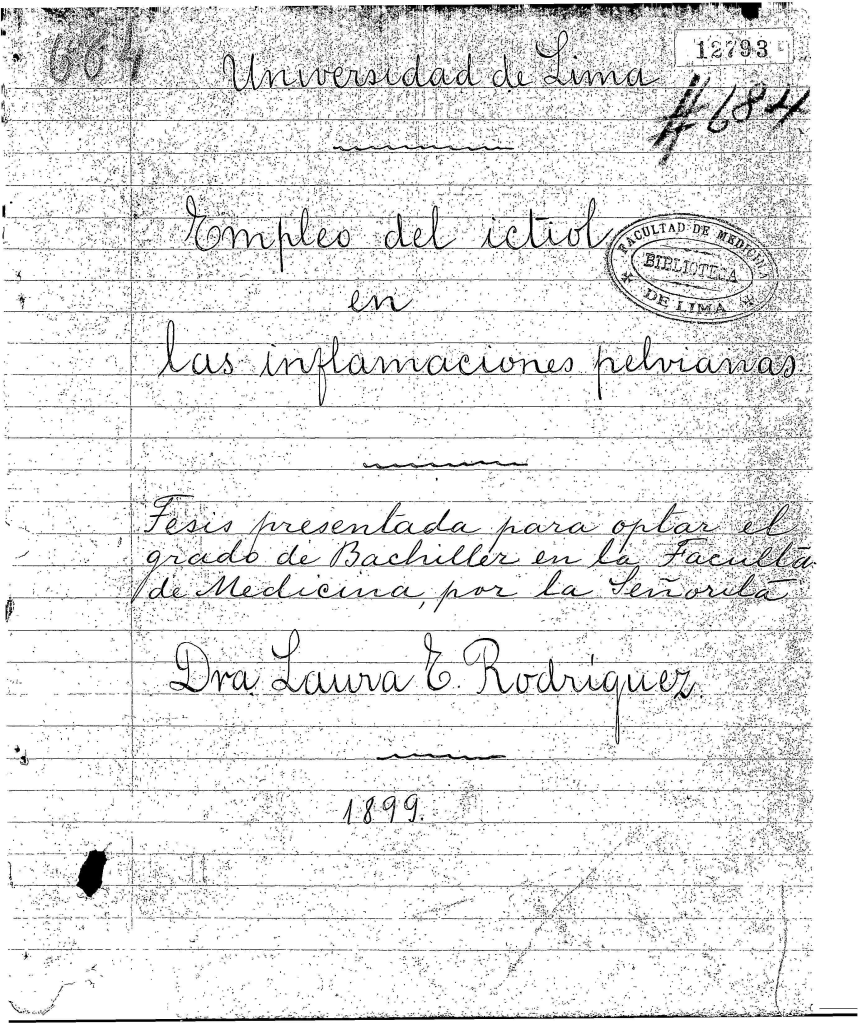 664
12793
Universidad de Lima
#684
Empleo del ictiol
FACULTAD DE MEDICINA
BIBLIOTECA
DE LIMA
en
las inflamaciones pelvianas
Tesis presentada para optar el
grado de Bachiller en la Faculta
de Medicina, por la Señorita
Dra. Laura E. Rodríguez.
1899.